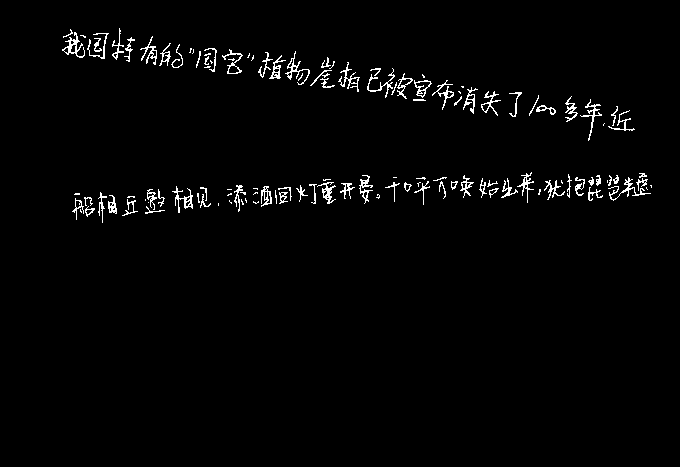 我国特有的“国宝”植物崖柏已被宣布消失了100多年,近
船相近邀相见,添酒回灯重开宴。千呼万唤始出来,犹抱琵琶半遮